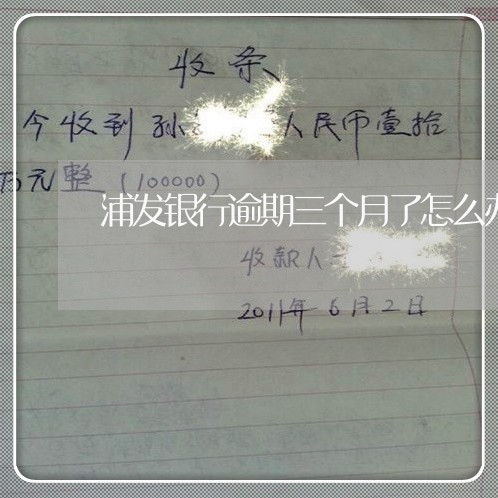 收条
今收到孙 人民币壹拾
万元整(100000)
浦发银行逾期三个月了怎么办
收款人
2011年6月2日